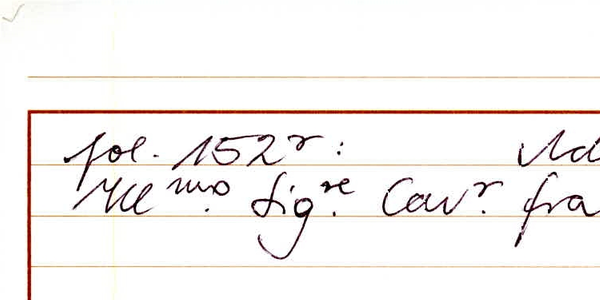 fol. 152r: Ad
Illmo. Sigre. Cavr. fra